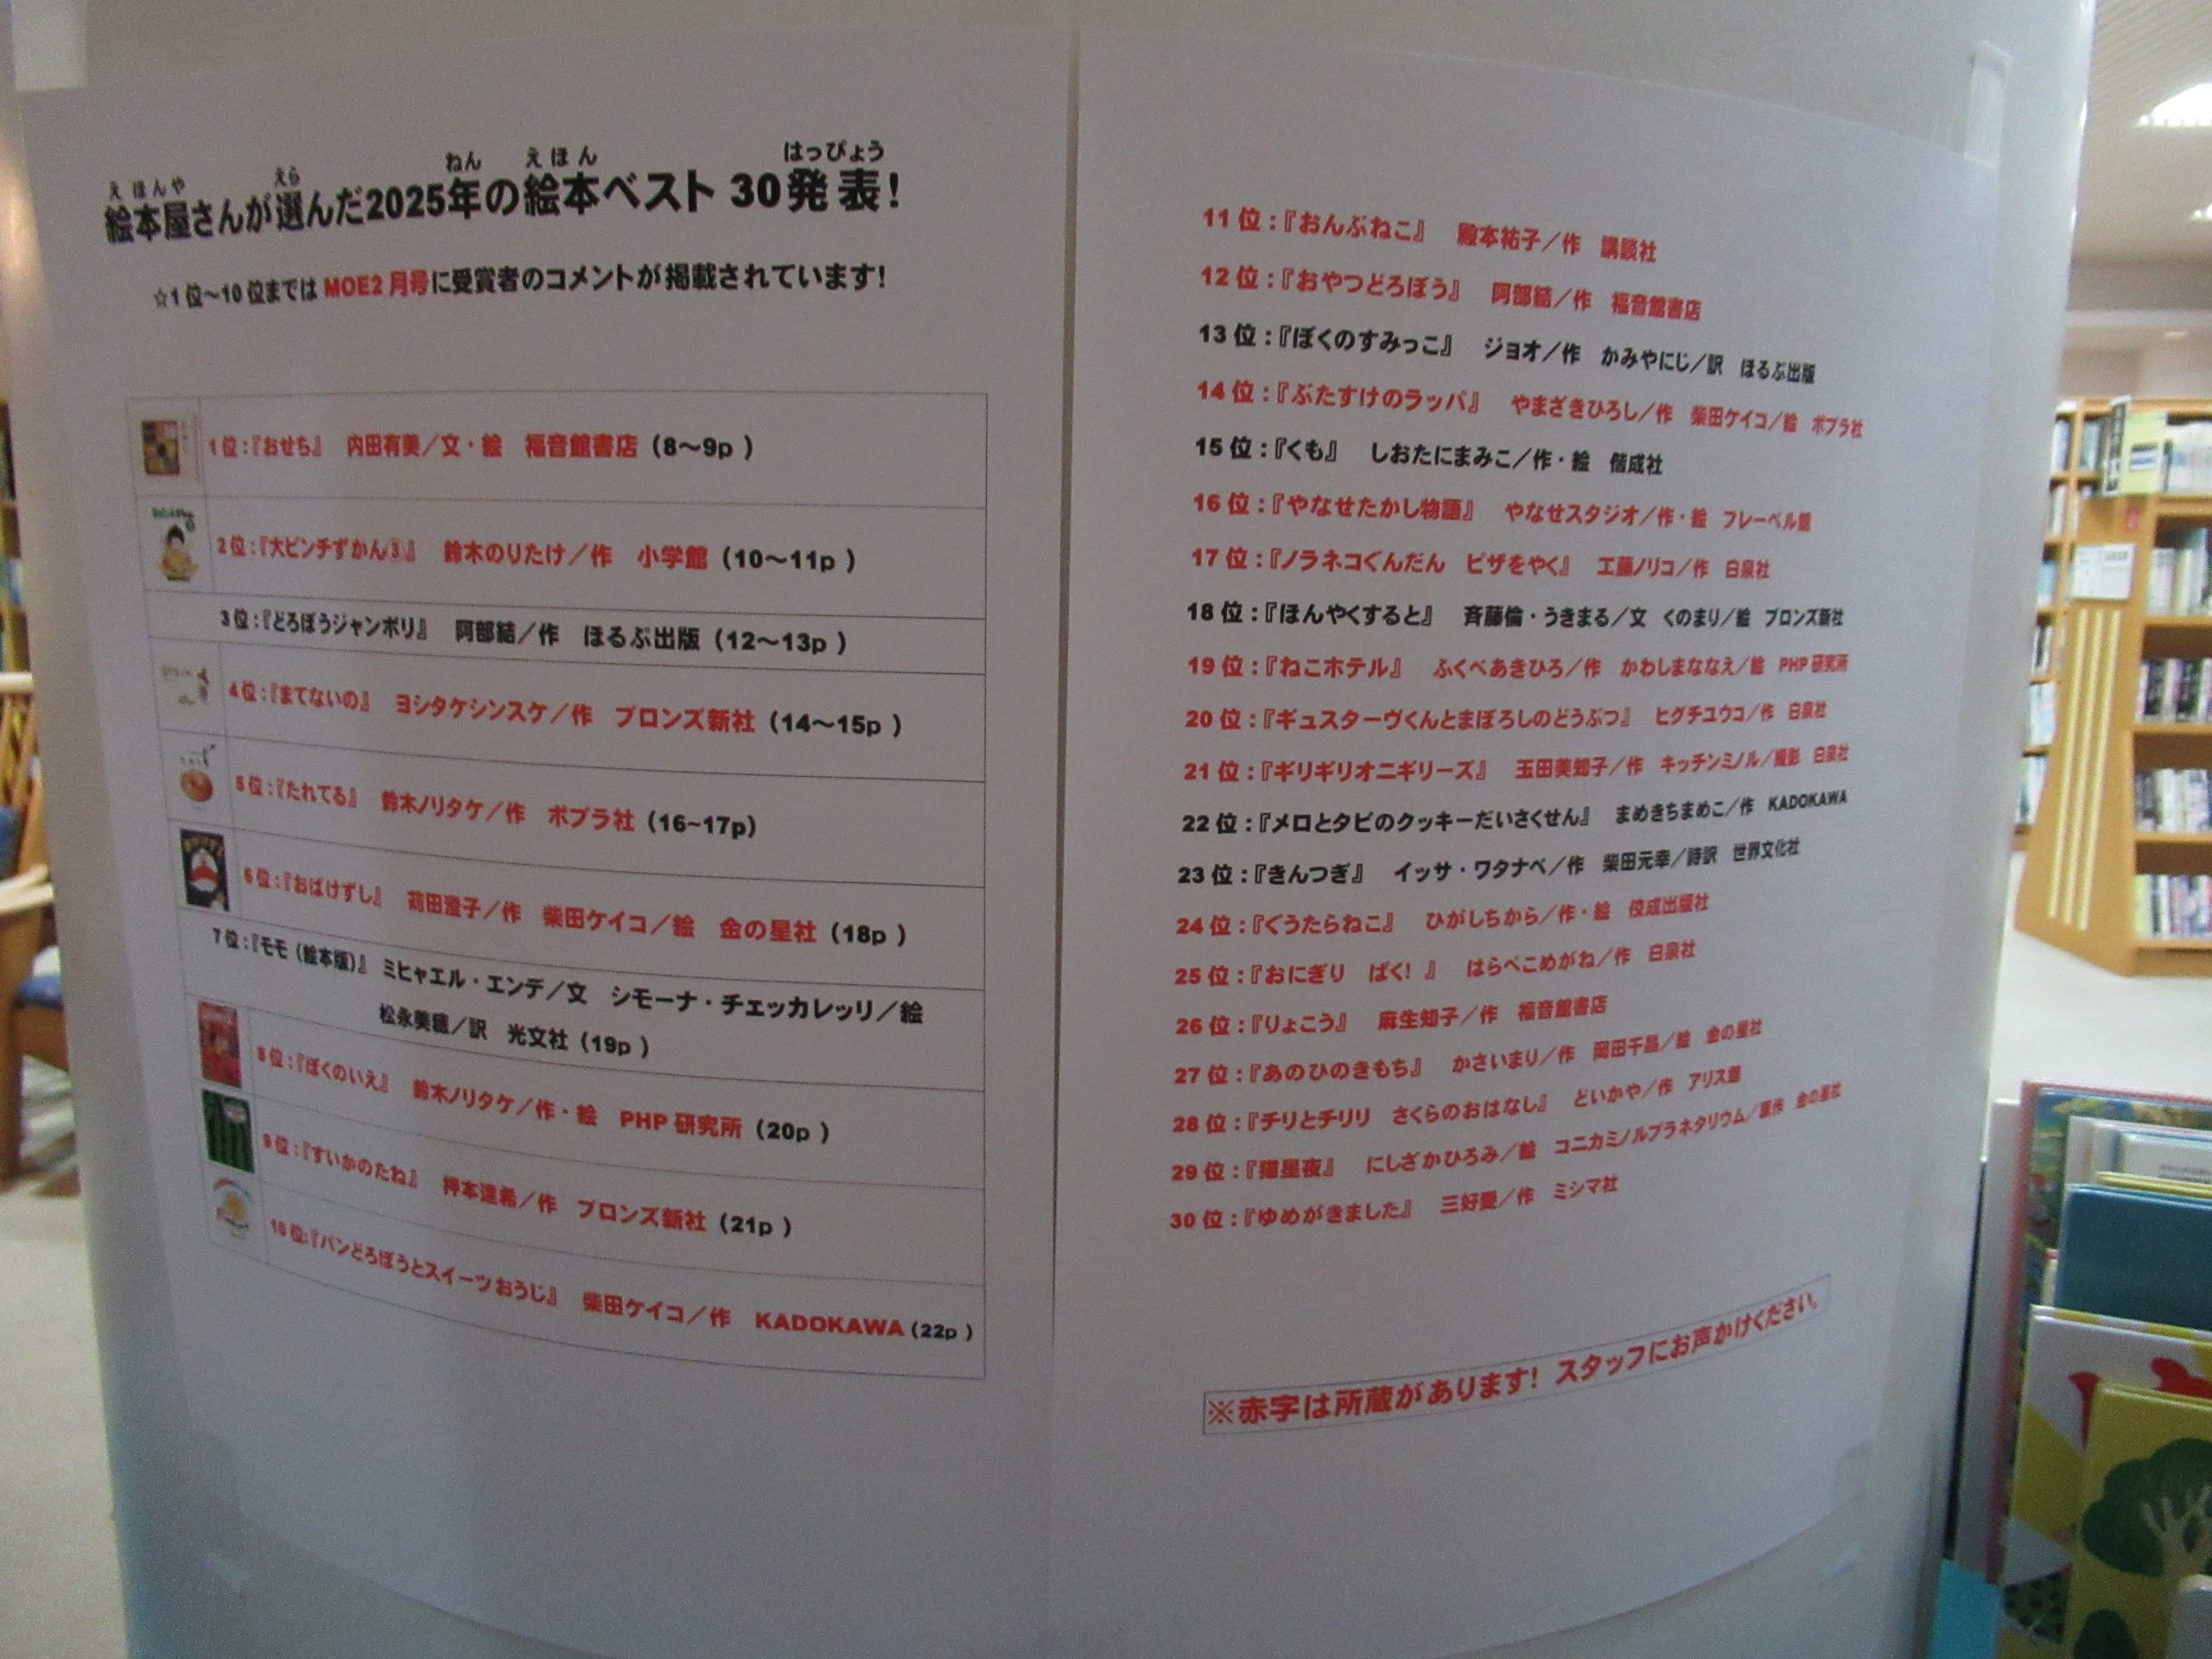 絵本屋さんが選んだ2025年の絵本ベスト30発表!
えほんや えら ねん えほん はっぴょう
☆1位~10位まではMOE2月号に受賞者のコメントが掲載されています!
1位:『おせち』 内田有美/文・絵 福音館書店(8~9p )
2位:『大ピンチずかん③』 鈴木のりたけ/作 小学館(10~11p )
3位:『どろぼうジャンボリ』 阿部結/作 ほるぷ出版(12~13p )
4位:『まてないの』 ヨシタケシンスケ/作 ブロンズ新社(14~15p )
5位:『たれてる』 鈴木ノリタケ/作 ポプラ社(16~17p)
6位:『おばけずし』 苅田澄子/作 柴田ケイコ/絵 金の星社(18p )
7位:『モモ(絵本版)』 ミヒャエル・エンデ/文 シモーナ・チェッカレッリ/絵
松永美穂/訳 光文社(19p )
8位:『ぼくのいえ』 鈴木ノリタケ/作・絵 PHP研究所(20p )
9位:『すいかのたね』 押本達希/作 ブロンズ新社(21p )
10位:『パンどろぼうとスイーツおうじ』 柴田ケイコ/作 KADOKAWA(22p )
11位:『おんぶねこ』 殿本祐子/作 講談社
12位:『おやつどろぼう』 阿部結/作 福音館書店
13位:『ぼくのすみっこ』 ジョオ/作 かみやにじ/訳 ほるぷ出版
14位:『ぶたすけのラッパ』 やまざきひろし/作 柴田ケイコ/絵 ポプラ社
15位:『くも』 しおたにまみこ/作・絵 偕成社
16位:『やなせたかし物語』 やなせスタジオ/作・絵 フレーベル館
17位:『ノラネコぐんだん ピザをやく』 工藤ノリコ/作 白泉社
18位:『ほんやくすると』 斉藤倫・うきまる/文 くのまり/絵 ブロンズ新社
19位:『ねこホテル』 ふくべあきひろ/作 かわしまななえ/絵 PHP研究所
20位:『ギュスターヴくんとまぼろしのどうぶつ』 ヒグチユウコ/作 白泉社
21位:『ギリギリオニギリーズ』 玉田美知子/作 キッチンミノル/撮影 白泉社
22位:『メロとタビのクッキーだいさくせん』 まめきちまめこ/作 KADOKAWA
23位:『きんつぎ』 イッサ・ワタナベ/作 柴田元幸/詩訳 世界文化社
24位:『ぐうたらねこ』 ひがしちから/作・絵 佼成出版社
25位:『おにぎり ぱく! 』 はらぺこめがね/作 白泉社
26位:『りょこう』 麻生知子/作 福音館書店
27位:『あのひのきもち』 かさいまり/作 岡田千晶/絵 金の星社
28位:『チリとチリリ さくらのおはなし』 どいかや/作 アリス館
29位:『猫星夜』 にしざかひろみ/絵 コニカミノルタプラネタリウム/原作 金の星社
30位:『ゆめがきました』 三好愛/作 ミシマ社
※赤字は所蔵があります! スタッフにお声かけください。